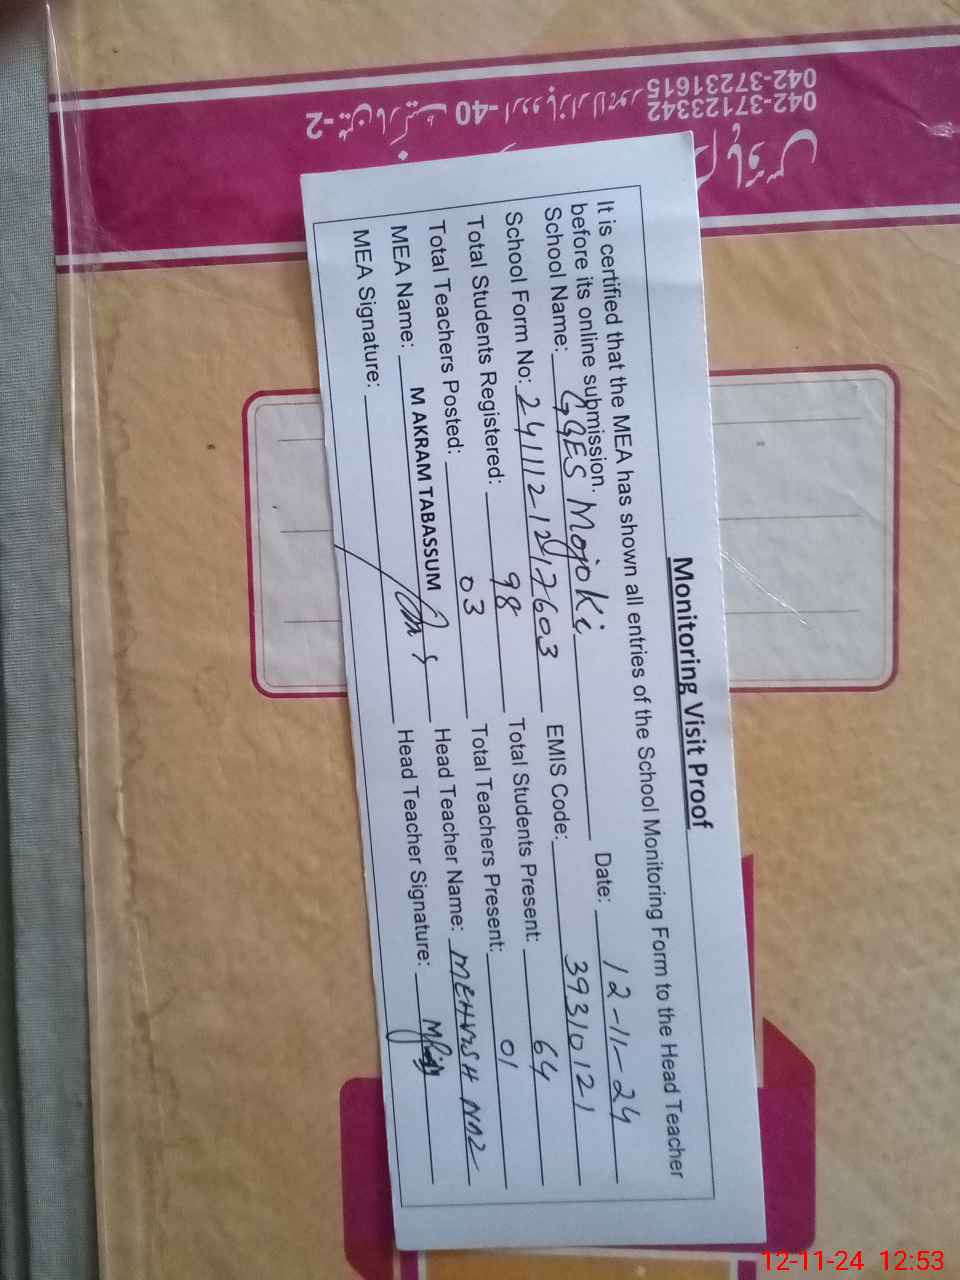 042-37231615
042-37123342
Monitoring Visit Proof
It is certified that the MEA has shown all entries of the School Monitoring Form to the Head Teacher
before its online submission.
Date: 12-11-24
School Name: GGES Mojoki
School Form No: EMIS Code: 39310121
Total Students Registered: 98 Total Students Present: 64
Total Teachers Posted: 03 Total Teachers Present: 01
MEA Name: M AKRAM TABASSUM Head Teacher Name: MEHVISH NAZ
MEA Signature: Head Teacher Signature:
12-11-24 12:53